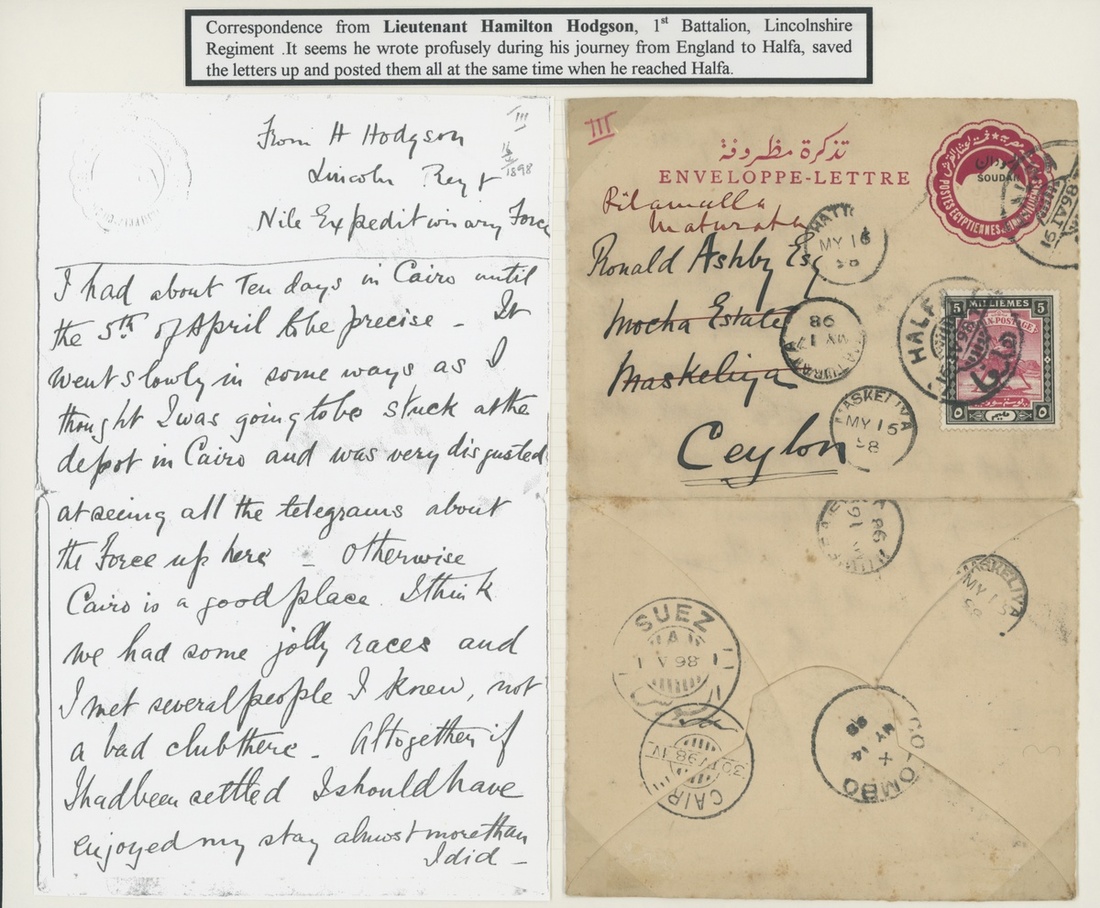 Correspondence from Lieutenant Hamilton Hodgson, 1st Battalion, Lincolnshire
Regiment .It seems he wrote profusely during his journey from England to Halfa, saved
the letters up and posted them all at the same time when he reached Halfa.
III
From H Hodgson
1898
Lincoln Regt
Nile Expeditionary Force
I had about Ten days in Cairo until
the 5th of April to be precise - It
went slowly in some ways as I
thought I was going to be stuck at the
depot in Cairo and was very disgusted
at seeing all the telegrams about
the Force up here - otherwise
Cairo is a good place. I think
we had some jolly races and
I met several people I knew, not
a bad club there - Altogether if
I had been settled I should have
enjoyed my stay almost more than
I did -
III
تذكرة مظروفة
ENVELOPPE-LETTRE
POSTES EGYPTIENNES
السودان
SOUDAN
Pitamalla
Maturata
Ronald Ashby Esq
Mocha Estate
Maskeliya
Ceylon
HATTON
MY 16
98
98
MY 17
MASKELIYA
MY 15
98
HALFA
5 MILLIEMES 5
SUEZ
1 V 98
CAIR
30 IV 98
MASKELIYA
MY 15
98
COLOMBO
MY 14
98